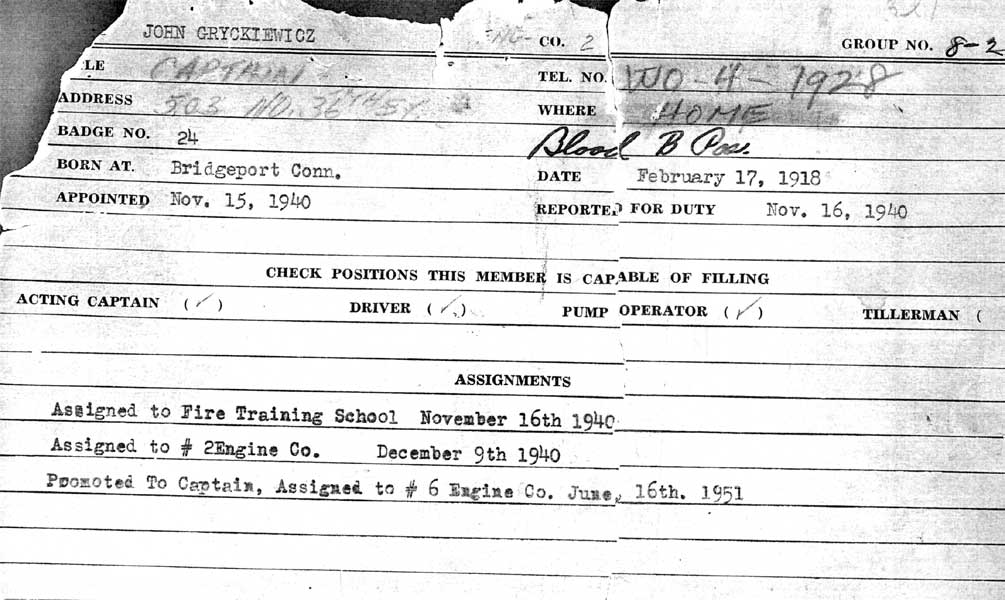 JOHN GRYCKIEWICZ ENG- CO. 2 GROUP NO. 8-2
LE CAPTAIN TEL. NO. WO-4-1928
ADDRESS 503 NO. 36TH ST. WHERE HOME
BADGE NO. 24 Blood B Pos.
BORN AT. Bridgeport Conn. DATE February 17, 1918
APPOINTED Nov. 15, 1940 REPORTED FOR DUTY Nov. 16, 1940
CHECK POSITIONS THIS MEMBER IS CAPABLE OF FILLING
ACTING CAPTAIN (✓) DRIVER (✓) PUMP OPERATOR (✓) TILLERMAN (
ASSIGNMENTS
Assigned to Fire Training School November 16th 1940
Assigned to # 2Engine Co. December 9th 1940
Promoted To Captain, Assigned to # 6 Engine Co. June, 16th. 1951